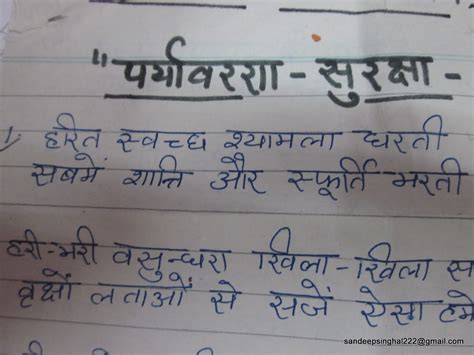 "पर्यावरण - सुरक्षा -
1. हरित स्वच्छ श्यामला धरती
सबमें शान्ति और स्फूर्ति भरती
हरी-भरी वसुन्धरा खिला-खिला स
वृक्षों लताओं से सजें ऐसा हमे
sandeepsinghal222@gmail.com